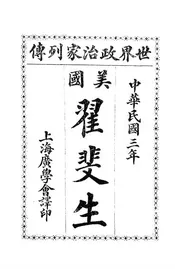 世界政治家列傳
中華民國三年
美國
翟斐生
上海廣學會譯印